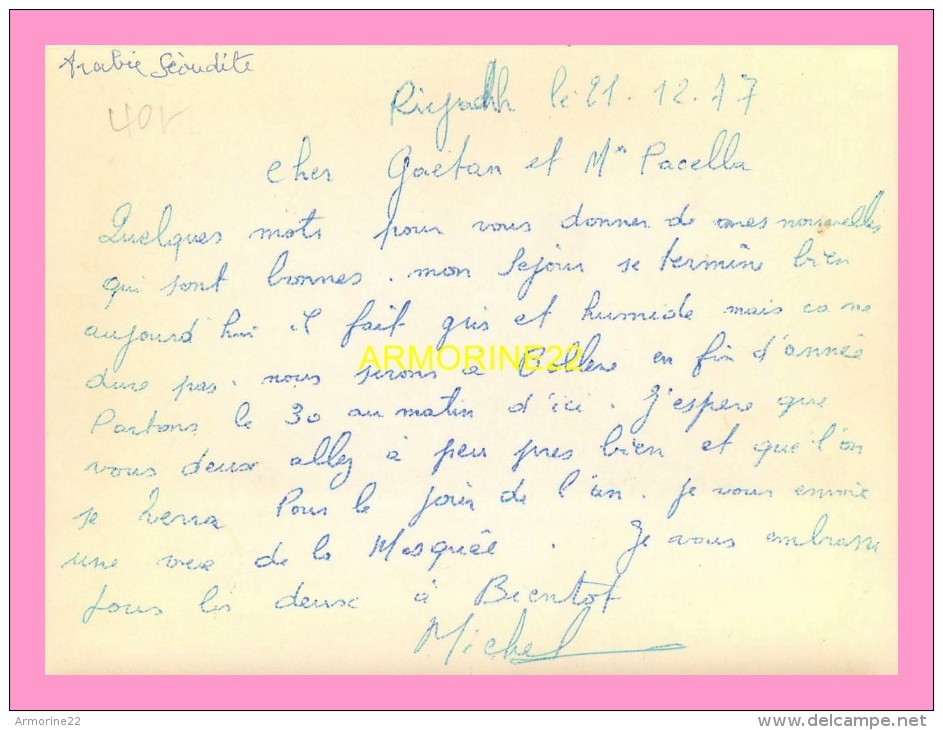 Arabie Séoudite
Riyadh le 21.12.77
40F
Cher Gaëtan et Mme Pacella
Quelques mots pour vous donner de mes nouvelles
qui sont bonnes. mon Sejour se termine bien
aujourd'hui il fait gris et humide mais ca ne
dure pas. nous serons à Bollene en fin d'année
Partons le 30 au matin d'ici. J'espere que
vous deux allez à peu pres bien et que l'on
se verra Pour le Jour de l'an. je vous envoie
une vue de la Mosquée. Je vous embrasse
tous les deux à Bientot
Michel
ARMORINE22
Armorine22
www.delcampe.net